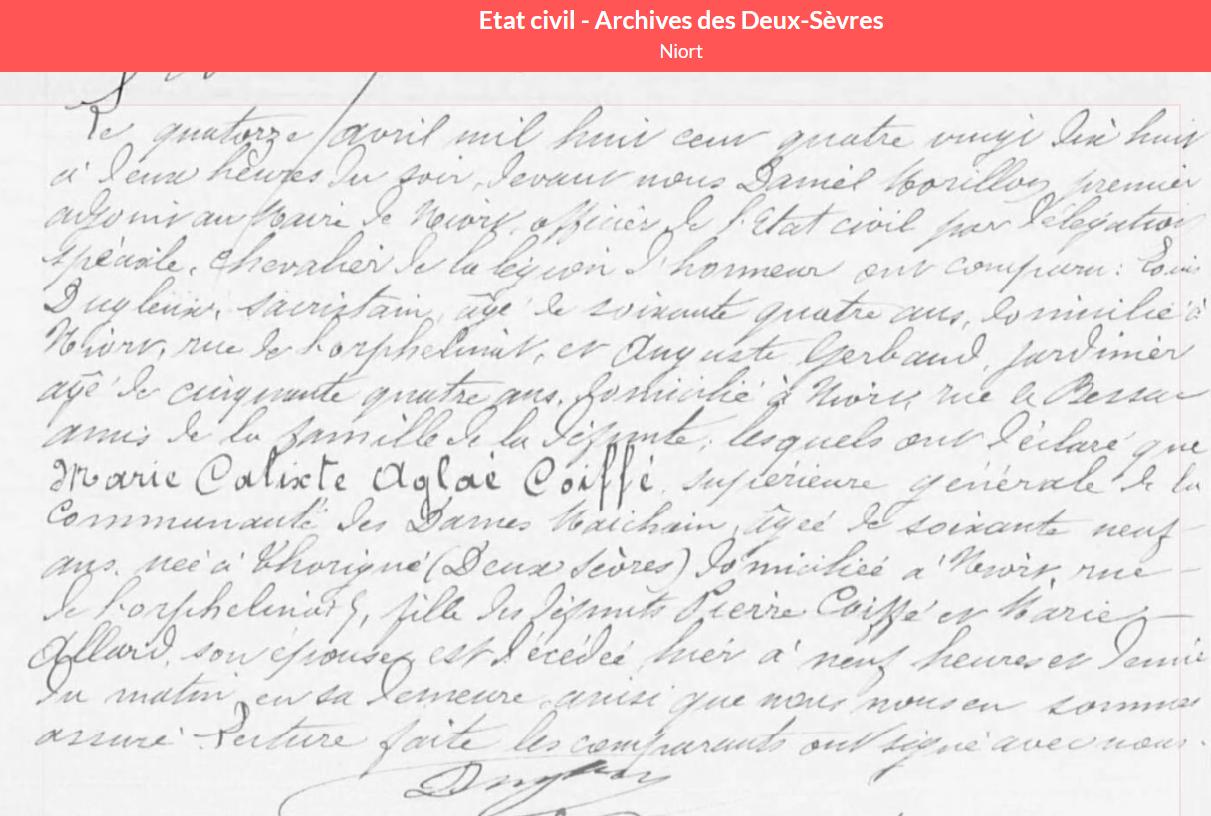 Etat civil - Archives des Deux-Sèvres
Niort
Le quatorze avril mil huit cent quatre vingt dix huit
à deux heures du soir, devant nous Daniel Morillon premier
adjoint au Maire de Niort, officier de l'Etat civil par délégation
spéciale, chevalier de la légion d'honneur ont comparu: Louis
sacristain, âgé de soixante quatre ans, domicilié à
Niort, rue de l'orphelinat, et Auguste Gerbaud, jardinier
âgé de cinquante quatre ans, domicilié à Niort, rue de Bessac
amis de la famille de la défunte; lesquels ont déclaré que
Marie Calixte Aglaé Coiffé, supérieure générale de la
Communauté des Dames Maichain, âgée de soixante neuf
ans, née à Thorigné (Deux Sèvres) domiciliée à Niort, rue
de l'orphelinat, fille des défunts Pierre Coiffé et Marie
Allard, son épouse, est décédée hier à neuf heures et demie
du matin, en sa demeure, ainsi que nous nous en sommes
assuré. Lecture faite les comparants ont signé avec nous.